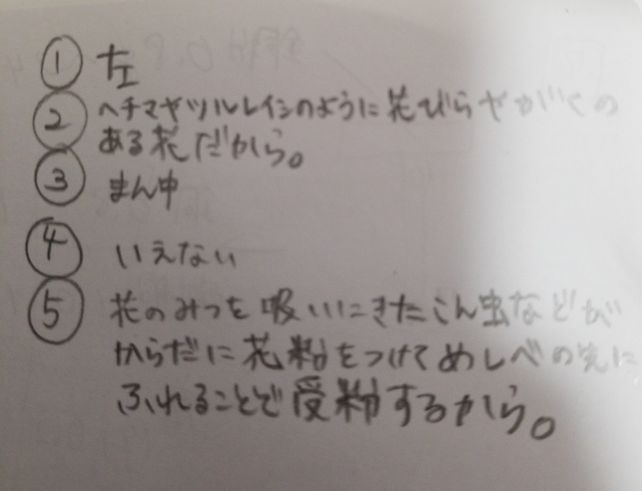 ① 左
② ヘチマやツルレイシのように花びらやがくの
ある花だから。
③ まん中
④ いえない
⑤ 花のみつを吸いにきたこん虫などが
からだに花粉をつけてめしべの先に
ふれることで受粉するから。